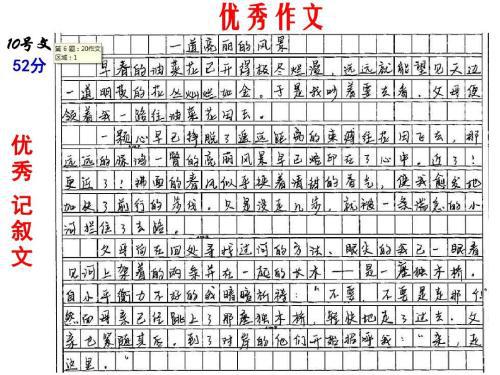 优秀作文
10号文
52分
第6题：20作文
区域：1
优秀记叙文
一道亮丽的风景
早春的油菜花已开得极尽烂漫，远远就能望见天边
一道明黄的花丛灿烂如金。于是我叫着要去看，父母便
领着我一路往油菜花田去。
一颗心早已挣脱了遥远距离的束缚往花田飞去，那
远远的一瞥的亮丽风景早已暗印在了心中。近了！
更近了！拂面的春风似乎挟着清甜的香气，使我愈发地
加快了前行的步伐。只是没走几步，就被一条湍急的小
河拦住了去路。
父母尚在四处寻找过河的方法，眼尖的我已一眼看
见河上架着的两条并在一起的长木——是一座独木桥。
自小平衡力不好的我暗暗祈祷：“不要，不要是走那个
然而母亲已经跳上了那座独木桥，轻快地走了过去。父
亲已紧随其后，到了对岸的他们开始招呼我：“来，走
这里。”